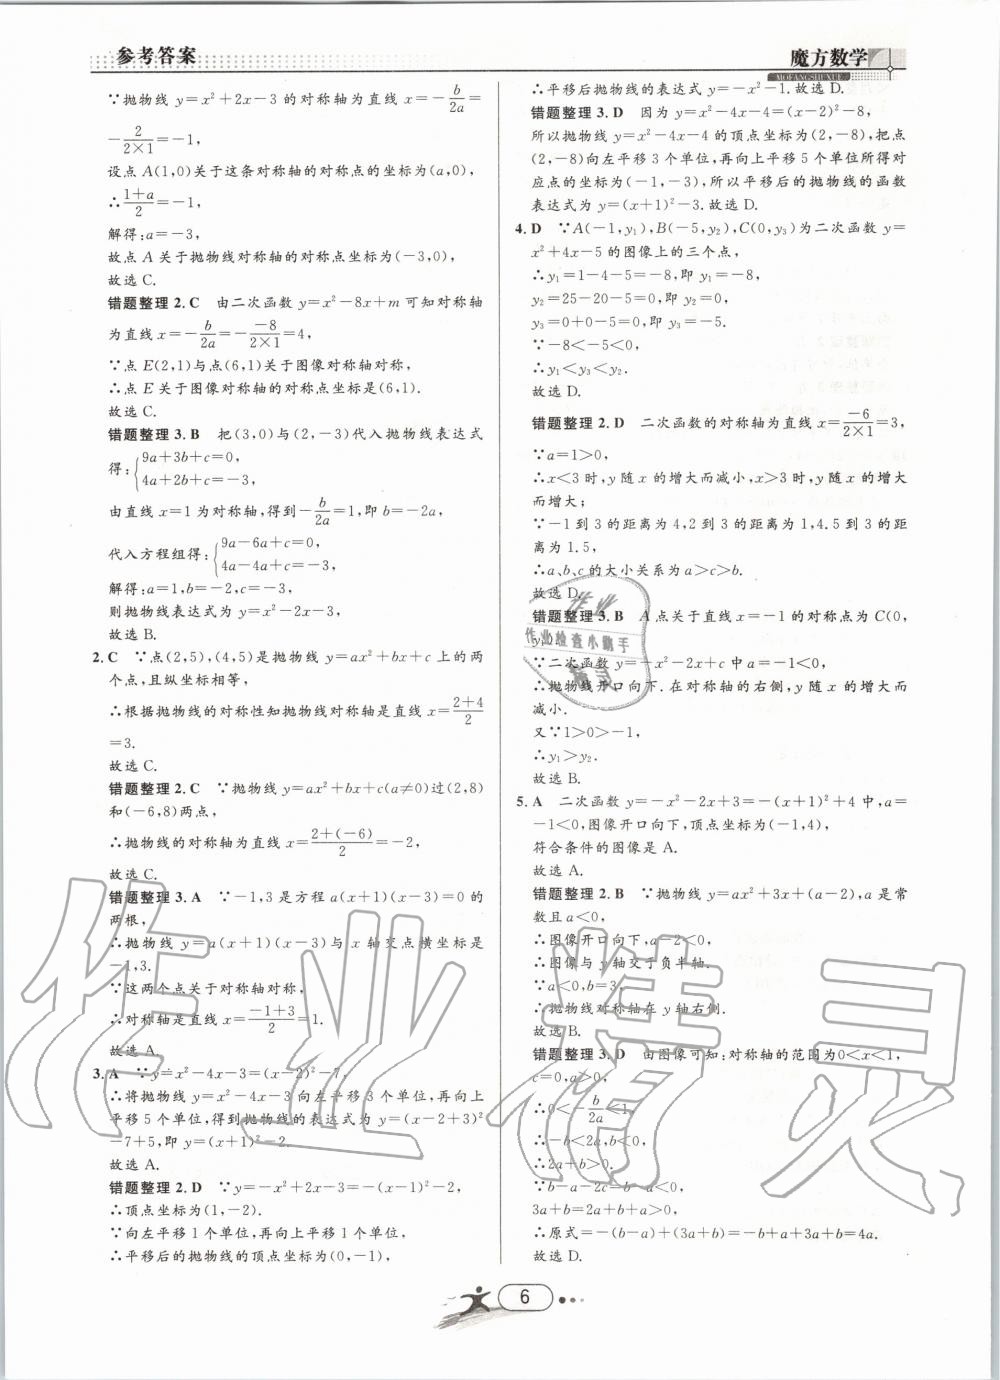 参考答案
魔方数学
MOFANGSHUXUE
∵抛物线 y=x²+2x-3 的对称轴为直线 x=-b/2a=
-2/(2×1)=-1,
设点 A(1,0)关于这条对称轴的对称点的坐标为(a,0),
∴(1+a)/2=-1,
解得:a=-3,
故点 A 关于抛物线对称轴的对称点坐标为(-3,0),
故选 C.
错题整理 2. C 由二次函数 y=x²-8x+m 可知对称轴
为直线 x=-b/2a=-(-8)/(2×1)=4,
∵点 E(2,1)与点(6,1)关于图像对称轴对称,
∴点 E 关于图像对称轴的对称点坐标是(6,1).
故选 C.
错题整理 3. B 把(3,0)与(2,-3)代入抛物线表达式
得:{9a+3b+c=0,
4a+2b+c=-3,
由直线 x=1 为对称轴,得到-b/2a=1,即 b=-2a,
代入方程组得:{9a-6a+c=0,
4a-4a+c=-3,
解得:a=1,b=-2,c=-3,
则抛物线表达式为 y=x²-2x-3,
故选 B.
2. C ∵点(2,5),(4,5)是抛物线 y=ax²+bx+c 上的两
个点,且纵坐标相等,
∴根据抛物线的对称性知抛物线对称轴是直线 x=(2+4)/2
=3.
故选 C.
错题整理 2. C ∵抛物线 y=ax²+bx+c(a≠0)过(2,8)
和(-6,8)两点,
∴抛物线的对称轴为直线 x=(2+(-6))/2=-2,
故选 C.
错题整理 3. A ∵-1,3 是方程 a(x+1)(x-3)=0 的
两根,
∴抛物线 y=a(x+1)(x-3)与 x 轴交点横坐标是
-1,3.
∵这两个点关于对称轴对称,
∴对称轴是直线 x=(-1+3)/2=1.
故选 A.
3. A ∵y=x²-4x-3=(x-2)²-7,
∴将抛物线 y=x²-4x-3 向左平移 3 个单位,再向上
平移 5 个单位,得到抛物线的表达式为 y=(x-2+3)²
-7+5,即 y=(x+1)²-2.
故选 A.
错题整理 2. D ∵y=-x²+2x-3=-(x-1)²-2,
∴顶点坐标为(1,-2).
∵向左平移 1 个单位,再向上平移 1 个单位,
∴平移后的抛物线的顶点坐标为(0,-1),
∴平移后抛物线的表达式 y=-x²-1.故选 D.
错题整理 3. D 因为 y=x²-4x-4=(x-2)²-8,
所以抛物线 y=x²-4x-4 的顶点坐标为(2,-8),把点
(2,-8)向左平移 3 个单位,再向上平移 5 个单位所得对
应点的坐标为(-1,-3),所以平移后的抛物线的函数
表达式为 y=(x+1)²-3.故选 D.
4. D ∵A(-1,y₁),B(-5,y₂),C(0,y₃)为二次函数 y=
x²+4x-5 的图像上的三个点,
∴y₁=1-4-5=-8,即 y₁=-8,
y₂=25-20-5=0,即 y₂=0,
y₃=0+0-5=-5,即 y₃=-5.
∵-8<-5<0,
∴y₁<y₃<y₂.
故选 D.
错题整理 2. D 二次函数的对称轴为直线 x=-6/(2×1)=3,
∵a=1>0,
∴x<3 时,y 随 x 的增大而减小,x>3 时,y 随 x 的增大
而增大;
∵-1 到 3 的距离为 4,2 到 3 的距离为 1,4.5 到 3 的距
离为 1.5,
∴a、b、c 的大小关系为 a>c>b.
故选 D.
错题整理 3. B A 点关于直线 x=-1 的对称点为 C(0,
∵二次函数 y=-x²-2x+c 中 a=-1<0,
∴抛物线开口向下.在对称轴的右侧,y 随 x 的增大而
减小.
又∵1>0>-1,
∴y₁>y₂.
故选 B.
5. A 二次函数 y=-x²-2x+3=-(x+1)²+4 中,a=
-1<0,图像开口向下,顶点坐标为(-1,4),
符合条件的图像是 A.
故选 A.
错题整理 2. B ∵抛物线 y=ax²+3x+(a-2),a 是常
数且 a<0,
∴图像开口向下,a-2<0,
∴图像与 y 轴交于负半轴.
∵a<0,b=3,
∴抛物线对称轴在 y 轴右侧.
故选 B.
错题整理 3. D 由图像可知:对称轴的范围为 0<x<1,
c=0,a>0,
∴0<-b/2a<1,
∴-b<2a,b<0,
∴2a+b>0.
∵b-a-2c=b-a<0,
3a+b=2a+b+a>0,
∴原式=-(b-a)+(3a+b)=-b+a+3a+b=4a.
故选 D.
作业
作业检查小助手
精灵
作业精灵
6